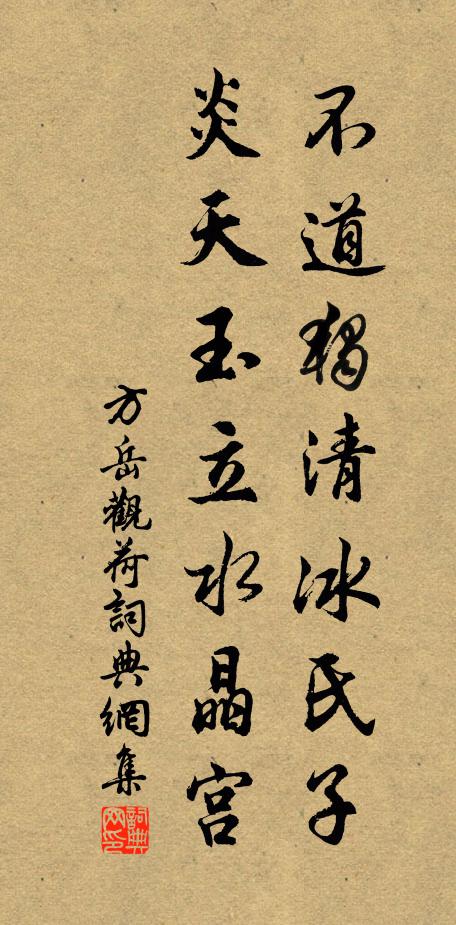 不道獨清冰氏子
炎天玉立水晶宮
方岳觀荷詞典網集
詞典網印